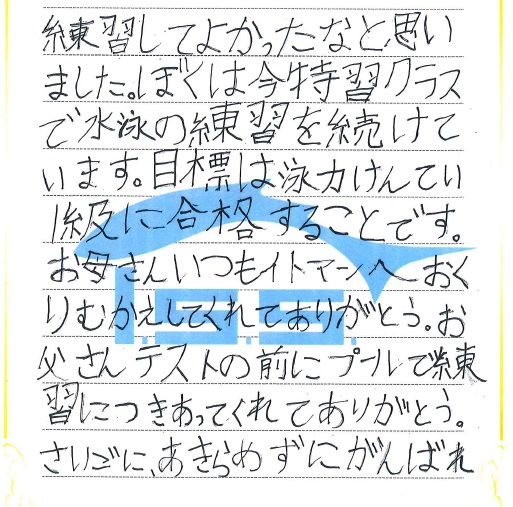 練習してよかったなと思い
ました。ぼくは今特習クラス
で水泳の練習を続けて
います。目標は泳力けんてい
1級に合格することです。
お母さんいつもイトマンへおく
りむかえしてくれてありがとう。お
父さんテストの前にプールで練
習につきあってくれてありがとう。
さいごに、あきらめずにがんばれ
I.S.S.